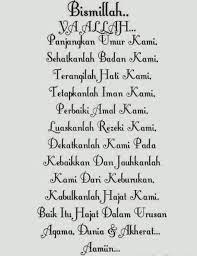 Bismillah..
YA ALLAH...
Panjangkan Umur Kami,
Sehatkanlah Badan Kami,
Terangilah Hati Kami,
Tetapkanlah Iman Kami,
Perbaiki Amal Kami,
Luaskanlah Rezeki Kami,
Dekatkanlah Kami Pada
Kebaikkan Dan Jauhkanlah
Kami Dari Keburukan,
Kabulkanlah Hajat Kami,
Baik Itu Hajat Dalam Urusan
Agama, Dunia & Akherat...
Aamiin...